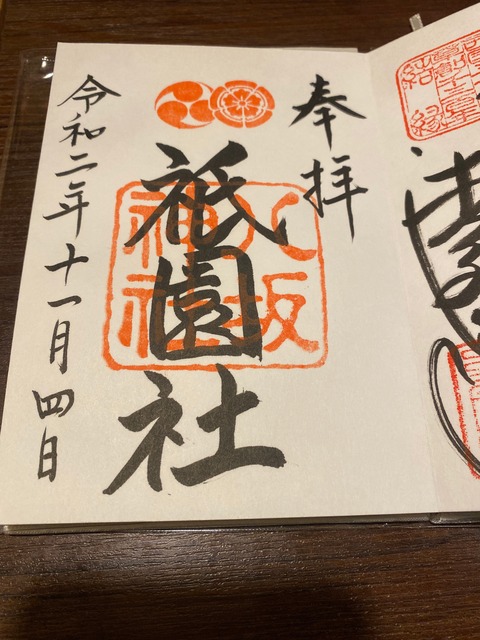 奉拝
八坂神社
祇園社
令和二年十一月四日
結縁